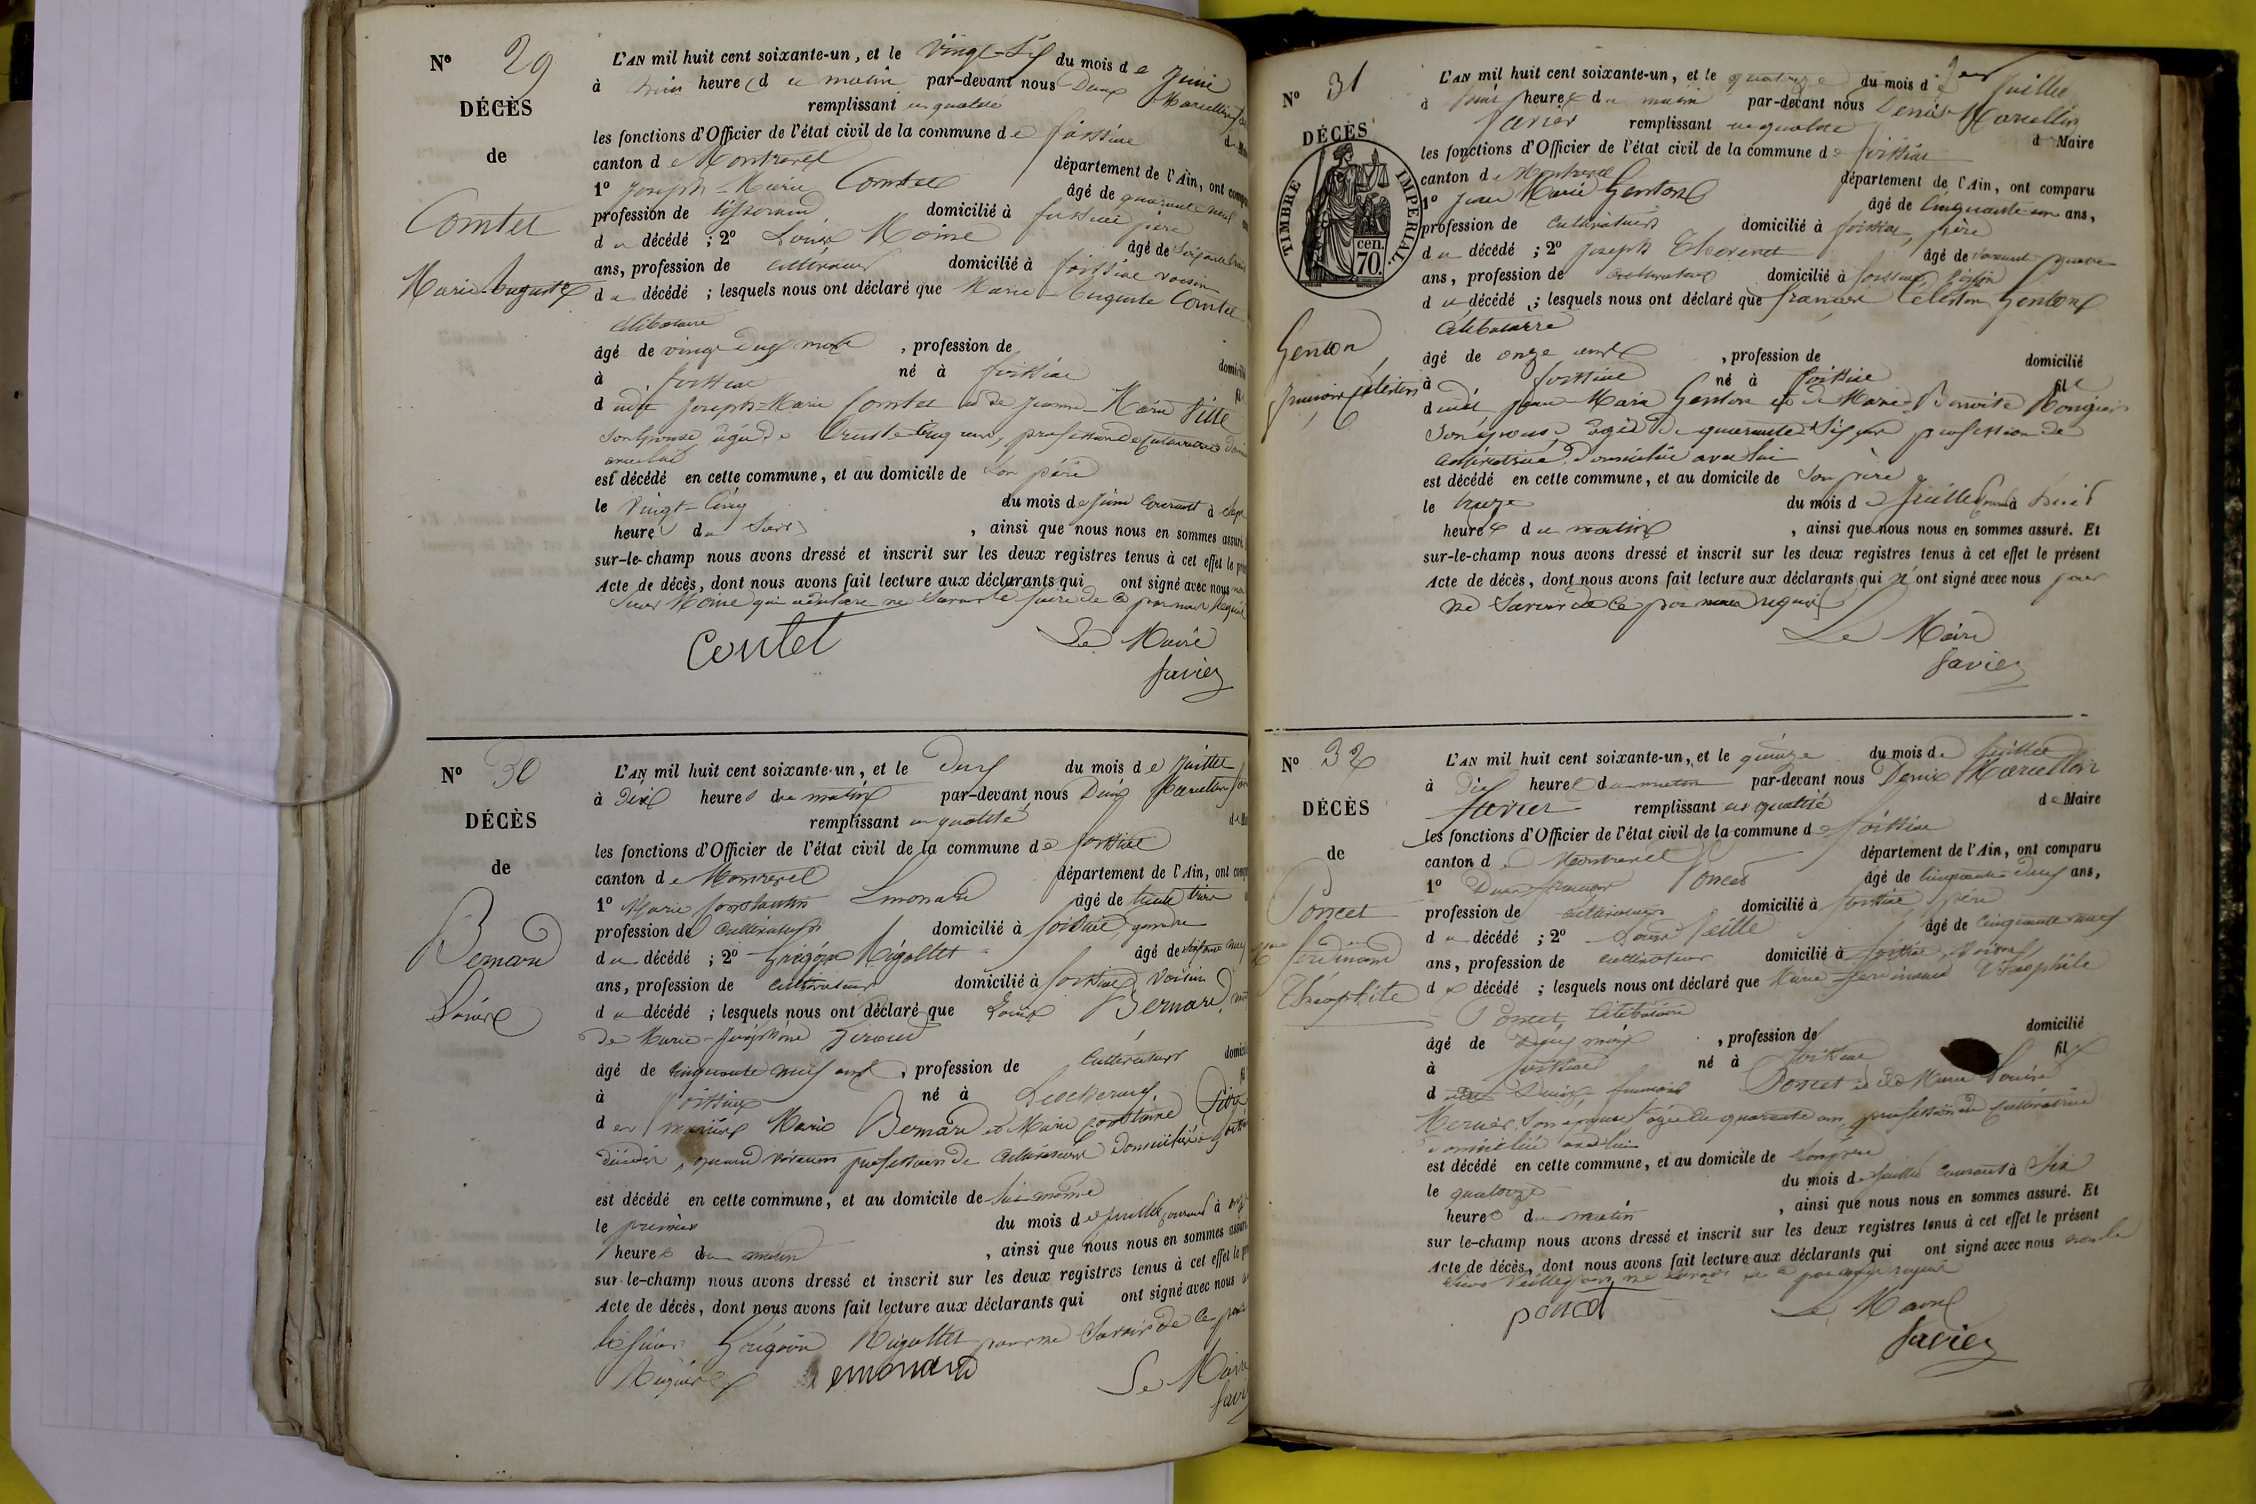 N° 29
DÉCÈS
de
Comtet
Marie Auguste
L'AN mil huit cent soixante-un, et le vingt-six du mois de Juin
à huit heures du matin par-devant nous Denis Marcellin
remplissant en qualité
les fonctions d'Officier de l'état civil de la commune de foissiat
canton de Montrevel département de l'Ain, ont
1° Joseph-Marie Comtet âgé de quarante neuf
profession de tisserand domicilié à foissiat père
du décédé ; 2° Louis Moine âgé de soixante
ans, profession de cultivateur domicilié à foissiat voisin
du décédé ; lesquels nous ont déclaré que Marie-Auguste Comtet
célibataire
âgé de vingt deux mois, profession de
à foissiat né à foissiat
dudit Joseph-Marie Comtet et de Jeanne-Marie
son épouse âgée de trente cinq ans, profession de cultivatrice
avec lui
est décédé en cette commune, et au domicile de son père
le vingt-cinq du mois de Juin courant à sept
heures du soir, ainsi que nous nous en sommes assuré
sur-le-champ nous avons dressé et inscrit sur les deux registres tenus à cet effet le
Acte de décès, dont nous avons fait lecture aux déclarants qui ont signé avec nous
sieur Moine qui a déclaré ne savoir le faire de ce par nous requis
comtet
Le Maire
favier
N° 30
DÉCÈS
de
Bernard
Louis
L'AN mil huit cent soixante-un, et le deux du mois de Juillet
à dix heures du matin par-devant nous Denis Marcellin
remplissant en qualité
les fonctions d'Officier de l'état civil de la commune de foissiat
canton de Montrevel département de l'Ain, ont
1° Marie Constantin Emonard âgé de trente
profession de cultivateur domicilié à foissiat, gendre
du décédé ; 2° Grégoire Rigollet âgé de soixante neuf
ans, profession de cultivateur domicilié à foissiat voisin
du décédé ; lesquels nous ont déclaré que Louis Bernard
de Marie-Joséphine Giroud
âgé de cinquante neuf ans, profession de cultivateur
à foissiat né à
de Marie Bernard et Marie
décédés, quand vivaient profession de cultivateurs domiciliés à
est décédé en cette commune, et au domicile de lui même
le premier du mois de juillet courant à onze
heures du matin, ainsi que nous nous en sommes
sur-le-champ nous avons dressé et inscrit sur les deux registres tenus à cet effet le
Acte de décès, dont nous avons fait lecture aux déclarants qui ont signé avec nous
le sieur Grégoire Rigollet pour ne savoir de ce par
Requis
emonard
Le Maire
N° 31
DÉCÈS
TIMBRE IMPÉRIAL
70 cen.
Genton
françois Célestin
L'AN mil huit cent soixante-un, et le quatorze du mois de Juillet
à huit heures du matin par-devant nous Denis Marcellin
favier remplissant en qualité de Maire
les fonctions d'Officier de l'état civil de la commune de foissiat
canton de Montrevel département de l'Ain, ont comparu
1° Jean Marie Genton âgé de cinquante un ans,
profession de cultivateur domicilié à foissiat, père
du décédé ; 2° Joseph Thevenet âgé de soixante quatre
ans, profession de cultivateur domicilié à foissiat voisin
du décédé ; lesquels nous ont déclaré que françois Célestin Genton
célibataire
âgé de onze ans, profession de domicilié
à foissiat né à foissiat fils
dudit Jean Marie Genton et de Marie-Benoite
son épouse, âgée de quarante six ans profession de
cultivatrice domiciliée avec lui
est décédé en cette commune, et au domicile de son père
le treize du mois de Juillet courant à huit
heures du matin, ainsi que nous nous en sommes assuré. Et
sur-le-champ nous avons dressé et inscrit sur les deux registres tenus à cet effet le présent
Acte de décès, dont nous avons fait lecture aux déclarants qui n'ont signé avec nous pour
ne savoir de ce par nous requis
Le Maire
favier
N° 32
DÉCÈS
de
Poncet
ferdinand
Théophile
L'AN mil huit cent soixante-un, et le quinze du mois de juillet
à dix heures du matin par-devant nous Denis Marcellin
favier remplissant en qualité de Maire
les fonctions d'Officier de l'état civil de la commune de foissiat
canton de Montrevel département de l'Ain, ont comparu
1° Denis françois Poncet âgé de cinquante deux ans,
profession de cultivateur domicilié à foissiat père
du décédé ; 2° Louis Veille âgé de cinquante neuf
ans, profession de cultivateur domicilié à foissiat, voisin
du décédé ; lesquels nous ont déclaré que Marie ferdinand Théophile
Poncet célibataire
âgé de deux mois, profession de domicilié
à foissiat né à foissiat fils
dudit Denis françois Poncet et de Marie Louise
son épouse âgée de quarante ans, profession de cultivatrice
domiciliée avec lui
est décédé en cette commune, et au domicile de son père
le quatorze du mois de juillet courant à six
heures du matin, ainsi que nous nous en sommes assuré. Et
sur le-champ nous avons dressé et inscrit sur les deux registres tenus à cet effet le présent
Acte de décès, dont nous avons fait lecture aux déclarants qui ont signé avec nous non le
sieur Veille pour ne savoir de ce par nous requis
poncet
Le Maire
favier